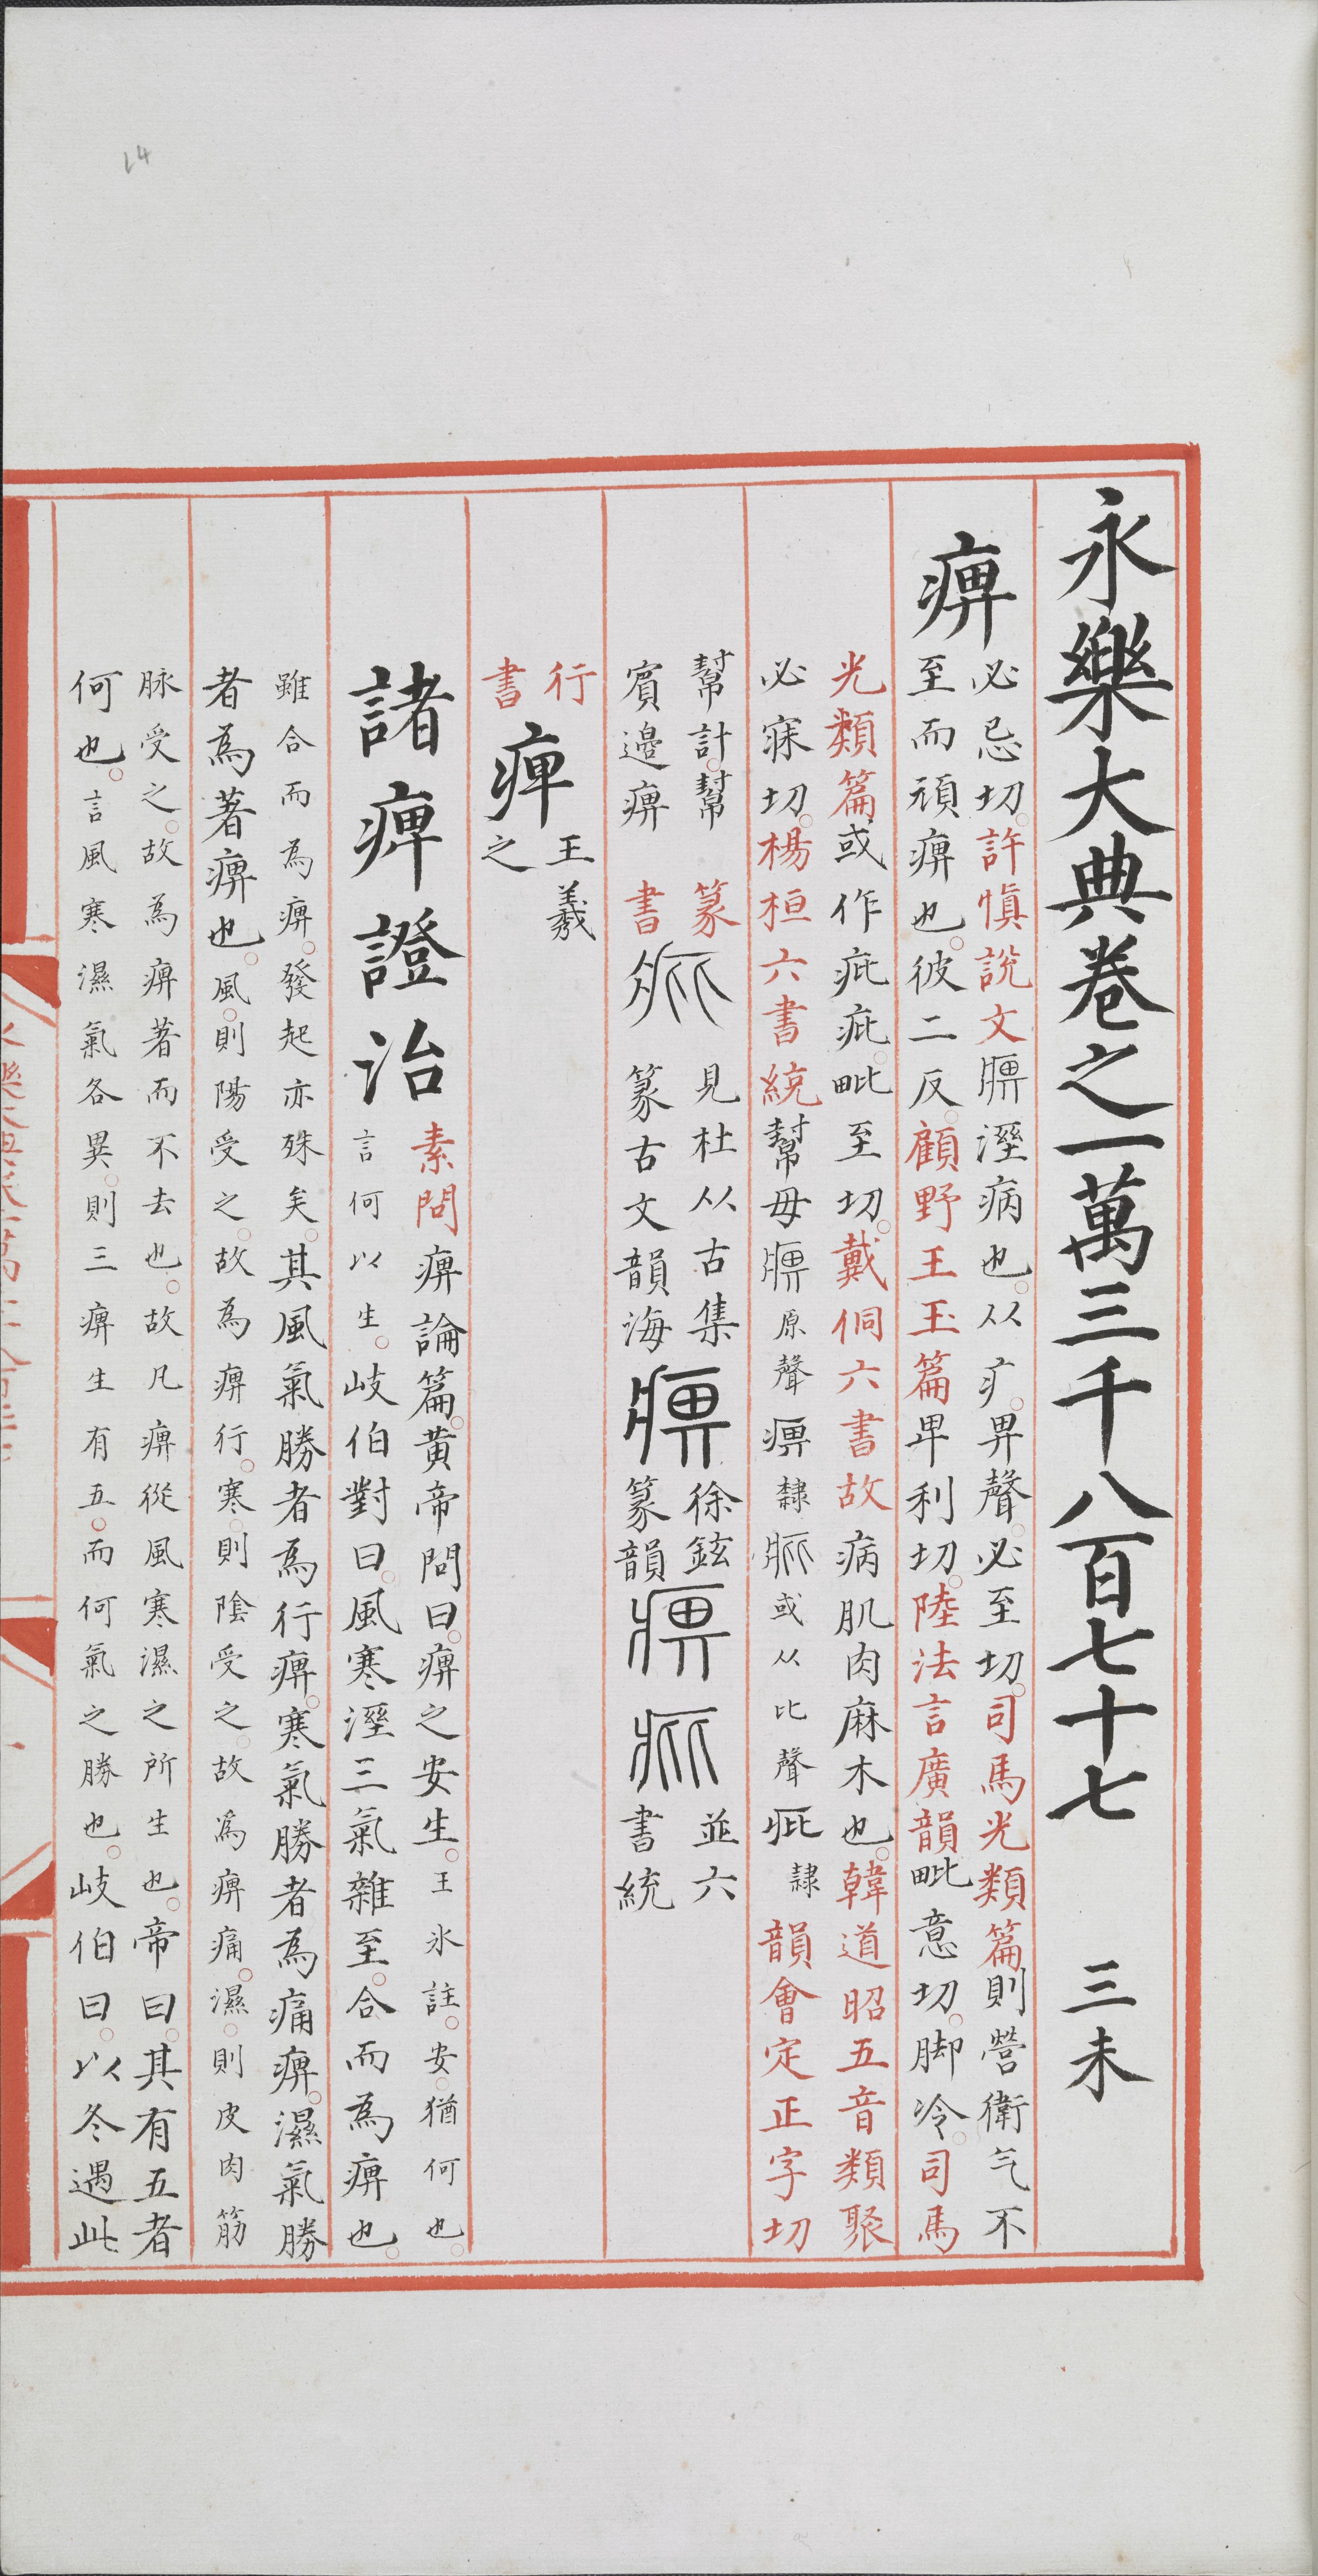 永樂大典卷之一萬三千八百七十七 三未
痹
必忌切許慎說文𤹨溼病也从疒畀聲必至切司馬光類篇則營衛气不
至而頑痹也彼二反顧野王玉篇卑利切陸法言廣韻毗意切脚冷司馬
光類篇或作疪疪毗至切戴侗六書故病肌肉麻木也韓道昭五音類聚
必寐切楊桓六書統幫母痹原聲痹隸或从比聲疪隸韻會定正字切
幫計幫 篆 見杜从古集 徐鉉 並六
賓邊痹 書 篆古文韻海 篆韻 書統
行
書
痺
王羲
之
諸痺證治
素問痹論篇黄帝問曰痹之安生王氷註安猶何也
言何以生岐伯對曰風寒溼三氣雜至合而為痹也
雖合而為痹發起亦殊矣其風氣勝者為行痹寒氣勝者為痛痹濕氣勝
者為著痹也風則陽受之故為痹行寒則陰受之故為痹痛濕則皮肉筋
脉受之故為痹著而不去也故凡痹從風寒濕之所生也帝曰其有五者
何也言風寒濕氣各異則三痹生有五而何氣之勝也岐伯曰以冬遇此
14